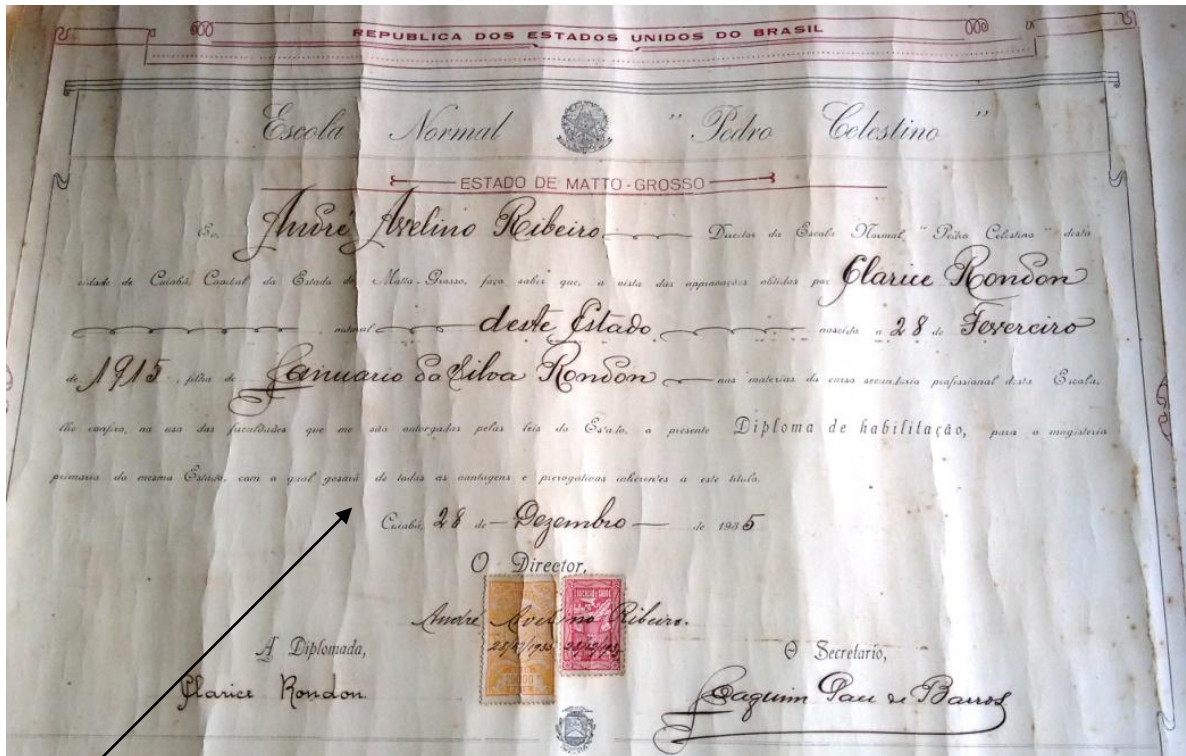 REPUBLICA DOS ESTADOS UNIDOS DO BRASIL
Escola Normal "Pedro Celestino"
ESTADO DE MATTO-GROSSO
Eu, André Avelino Ribeiro Director da Escola Normal "Pedro Celestino" desta
cidade de Cuiabá, Capital do Estado de Matto-Grosso, faço saber que, a vista das approvações obtidas por Clarice Rondon
natural deste Estado nascida a 28 de Fevereiro
de 1915, filha de Januario da Silva Rondon nas materias do curso secundario profissional desta Escola,
lhe confiro, no uso das faculdades que me são outorgadas pelas leis do Estado, o presente Diploma de habilitação, para o magisterio
primario do mesmo Estado, com o qual gosará de todas as vantagens e prerogativas inherentes a este titulo.
Cuiabá, 28 de Dezembro de 1935
O Director,
André Avelino Ribeiro.
EDUCAÇÃO E SAUDE
28/12/935 28/12/935
A Diplomada, O Secretario,
Clarice Rondon Joaquim Pau de Barros